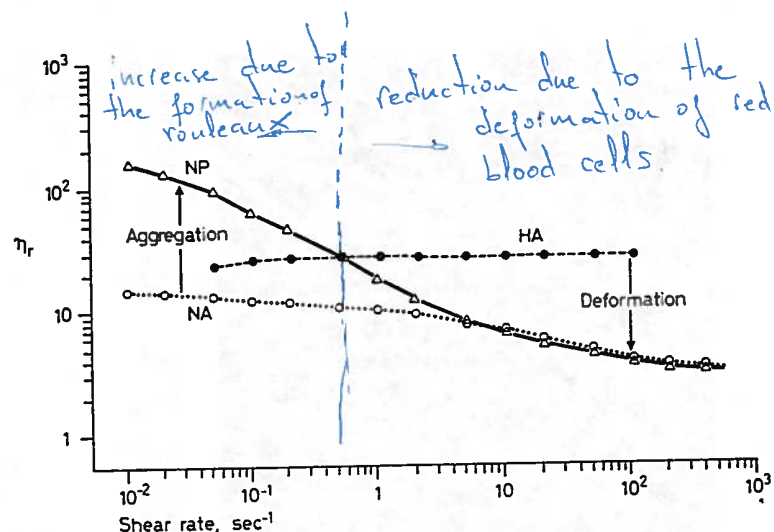 increase due to
the formation of
rouleaux
reduction due to the
deformation of red
blood cells.
10³
10²
10
1
ηr
NP
Aggregation
NA
HA
Deformation
10⁻² 10⁻¹ 1 10 10² 10³
Shear rate, sec⁻¹